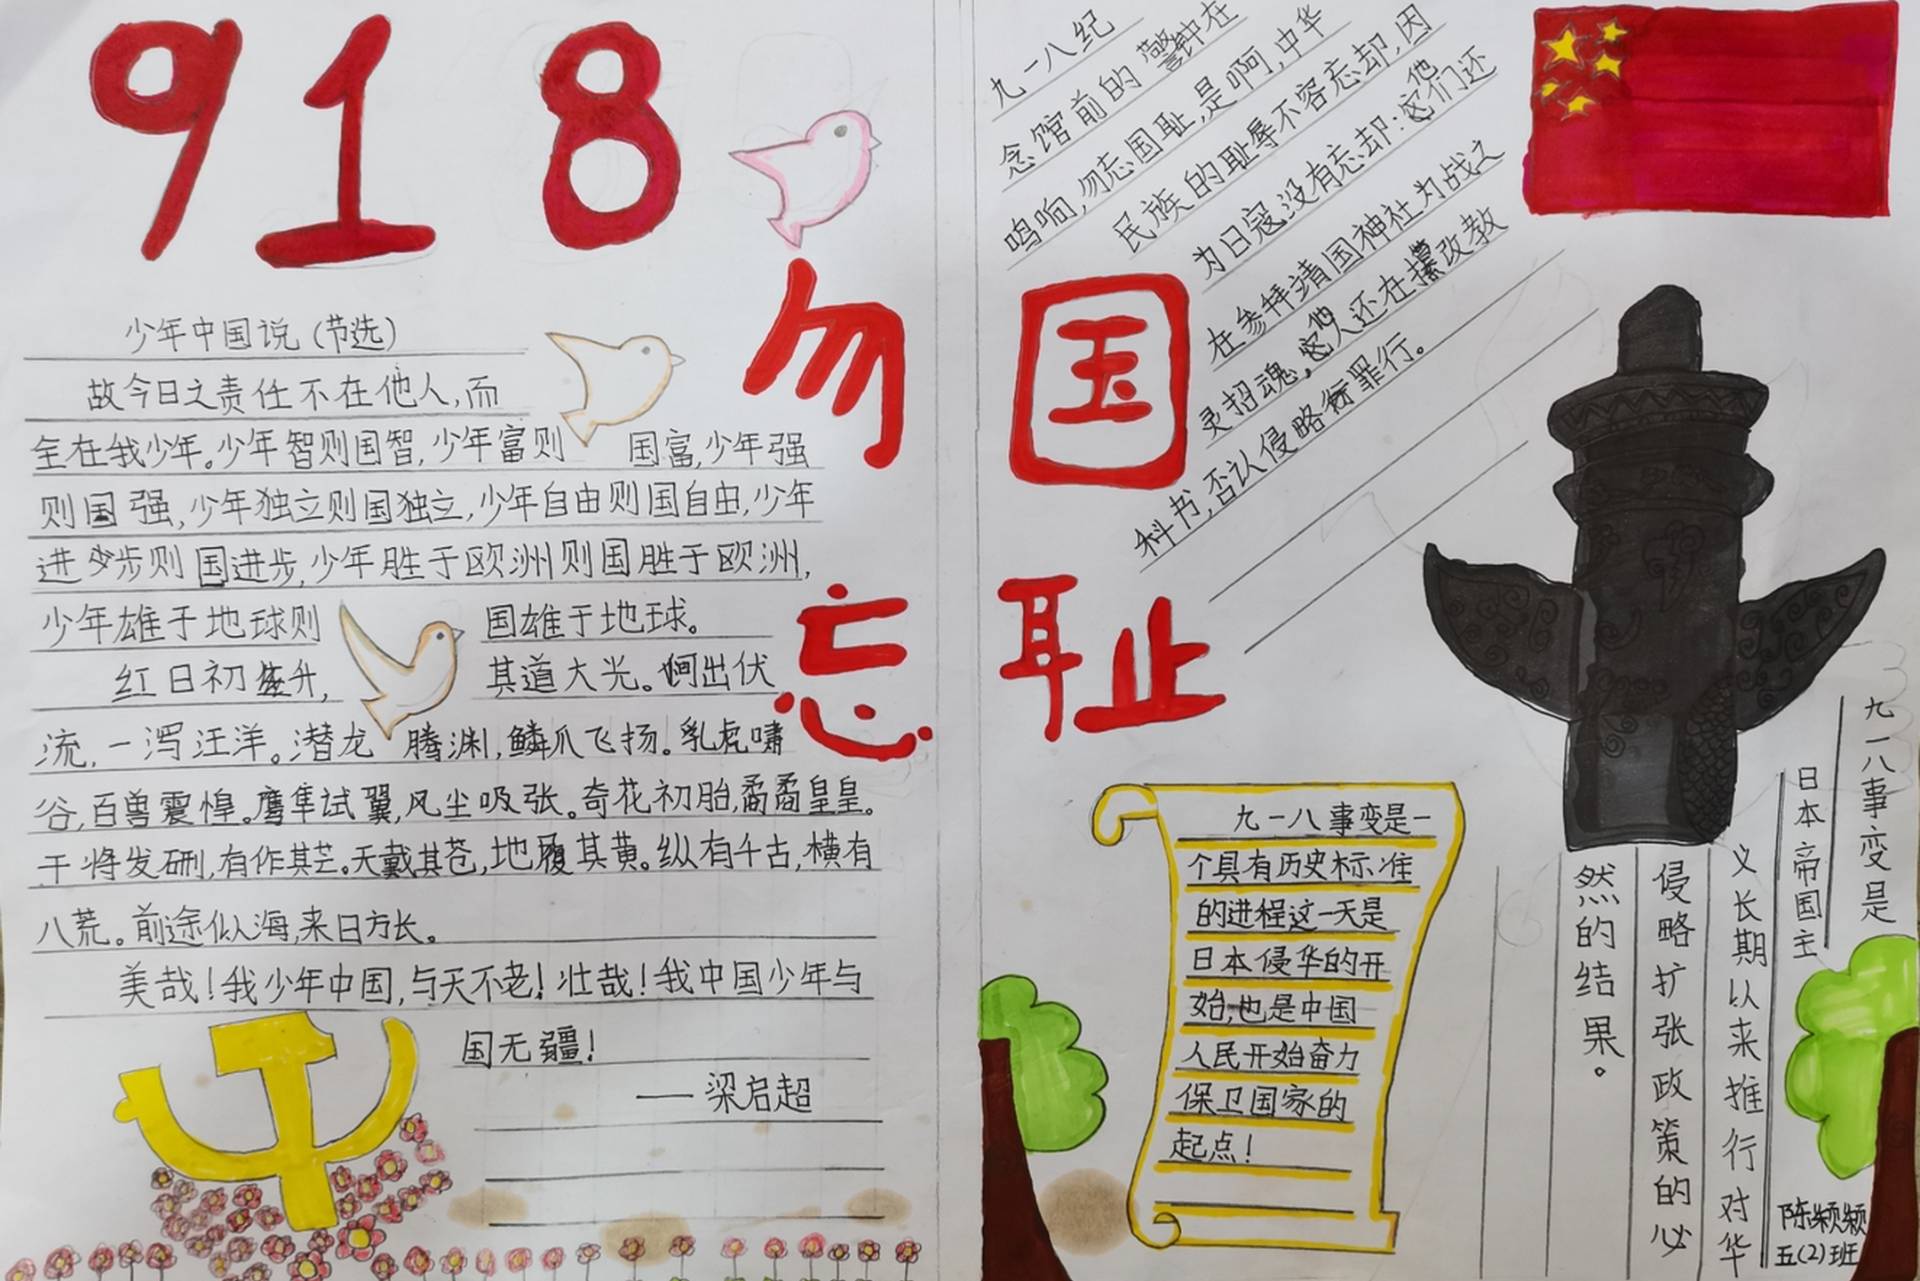 918
勿忘
国耻
少年中国说(节选)
故今日之责任不在他人,而
全在我少年。少年智则国智,少年富则 国富,少年强
则国强,少年独立则国独立,少年自由则国自由,少年
进步则国进步,少年胜于欧洲则国胜于欧洲,
少年雄于地球则 国雄于地球。
红日初升, 其道大光。河出伏
流,一泻汪洋。潜龙 腾渊,鳞爪飞扬。乳虎啸
谷,百兽震惶。鹰隼试翼,风尘吸张。奇花初胎,矞矞皇皇。
干将发硎,有作其芒。天戴其苍,地履其黄。纵有千古,横有
八荒。前途似海,来日方长。
美哉!我少年中国,与天不老!壮哉!我中国少年与
国无疆!
——梁启超
九一八纪
念馆前的警钟在
鸣响,勿忘国耻,是啊,中华
民族的耻辱不容忘却,因
为日寇没有忘却:他们还
在参拜靖国神社为战之
灵招魂,他人还在攥改教
科书,否认侵略罪行。
九一八事变是一
个具有历史标准
的进程这一天是
日本侵华的开
始,也是中国
人民开始奋力
保卫国家的
起点!
九一八事变是
日本帝国主
义长期以来推行对华
侵略扩张政策的必
然的结果。
陈颖颖
五(2)班